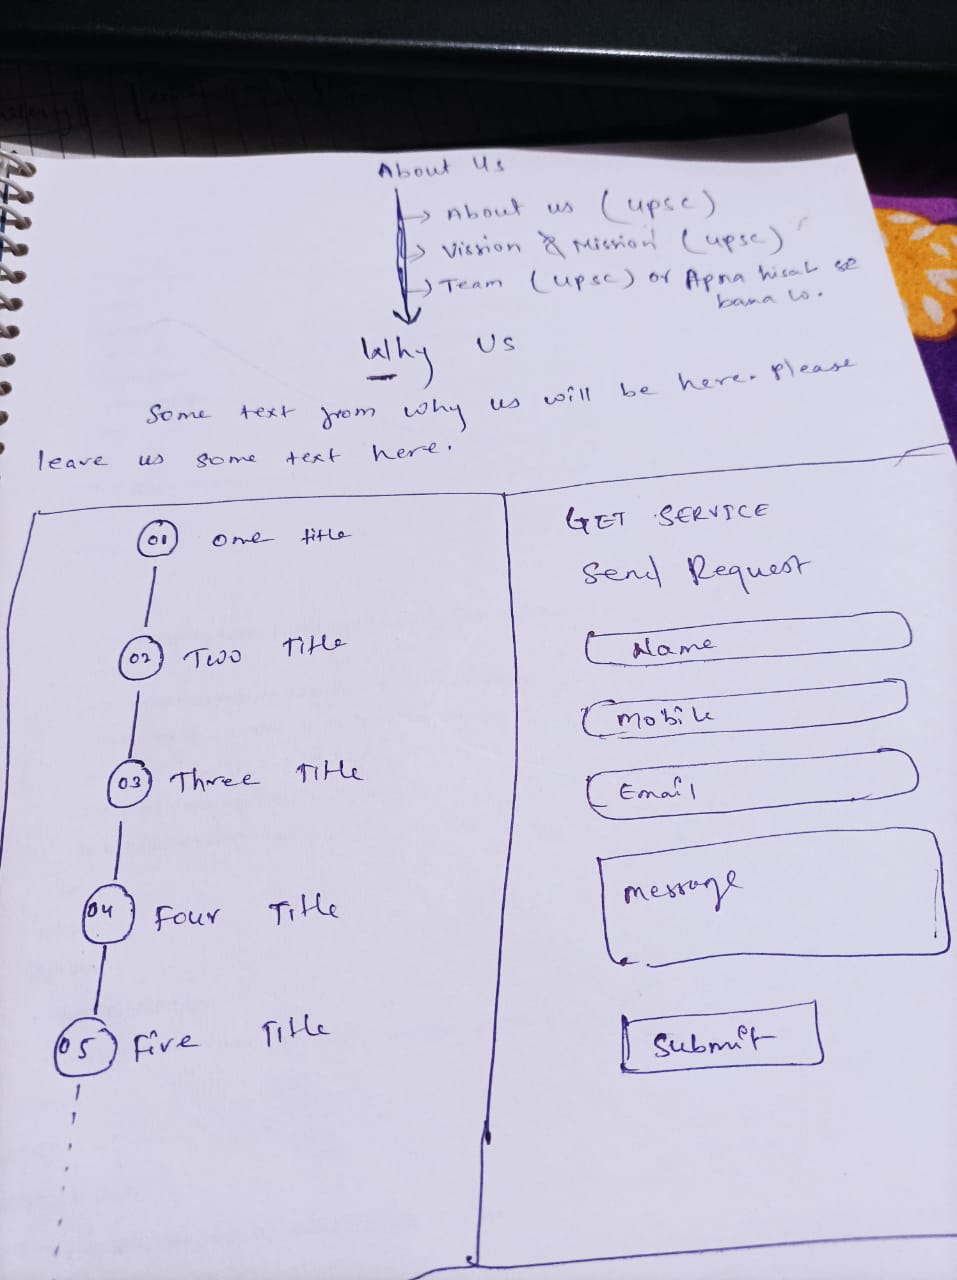 About Us
About us (upsc)
Vission & Mission (upsc)
Team (upsc) or Apna hisab se
bana lo.
Why Us
Some text from why us will be here. please
leave us some text here.
01 One title
02 Two Title
03 Three Title
04 Four Title
05 Five Title
GET SERVICE
Send Request
Name
Mobile
Email
Message
Submit